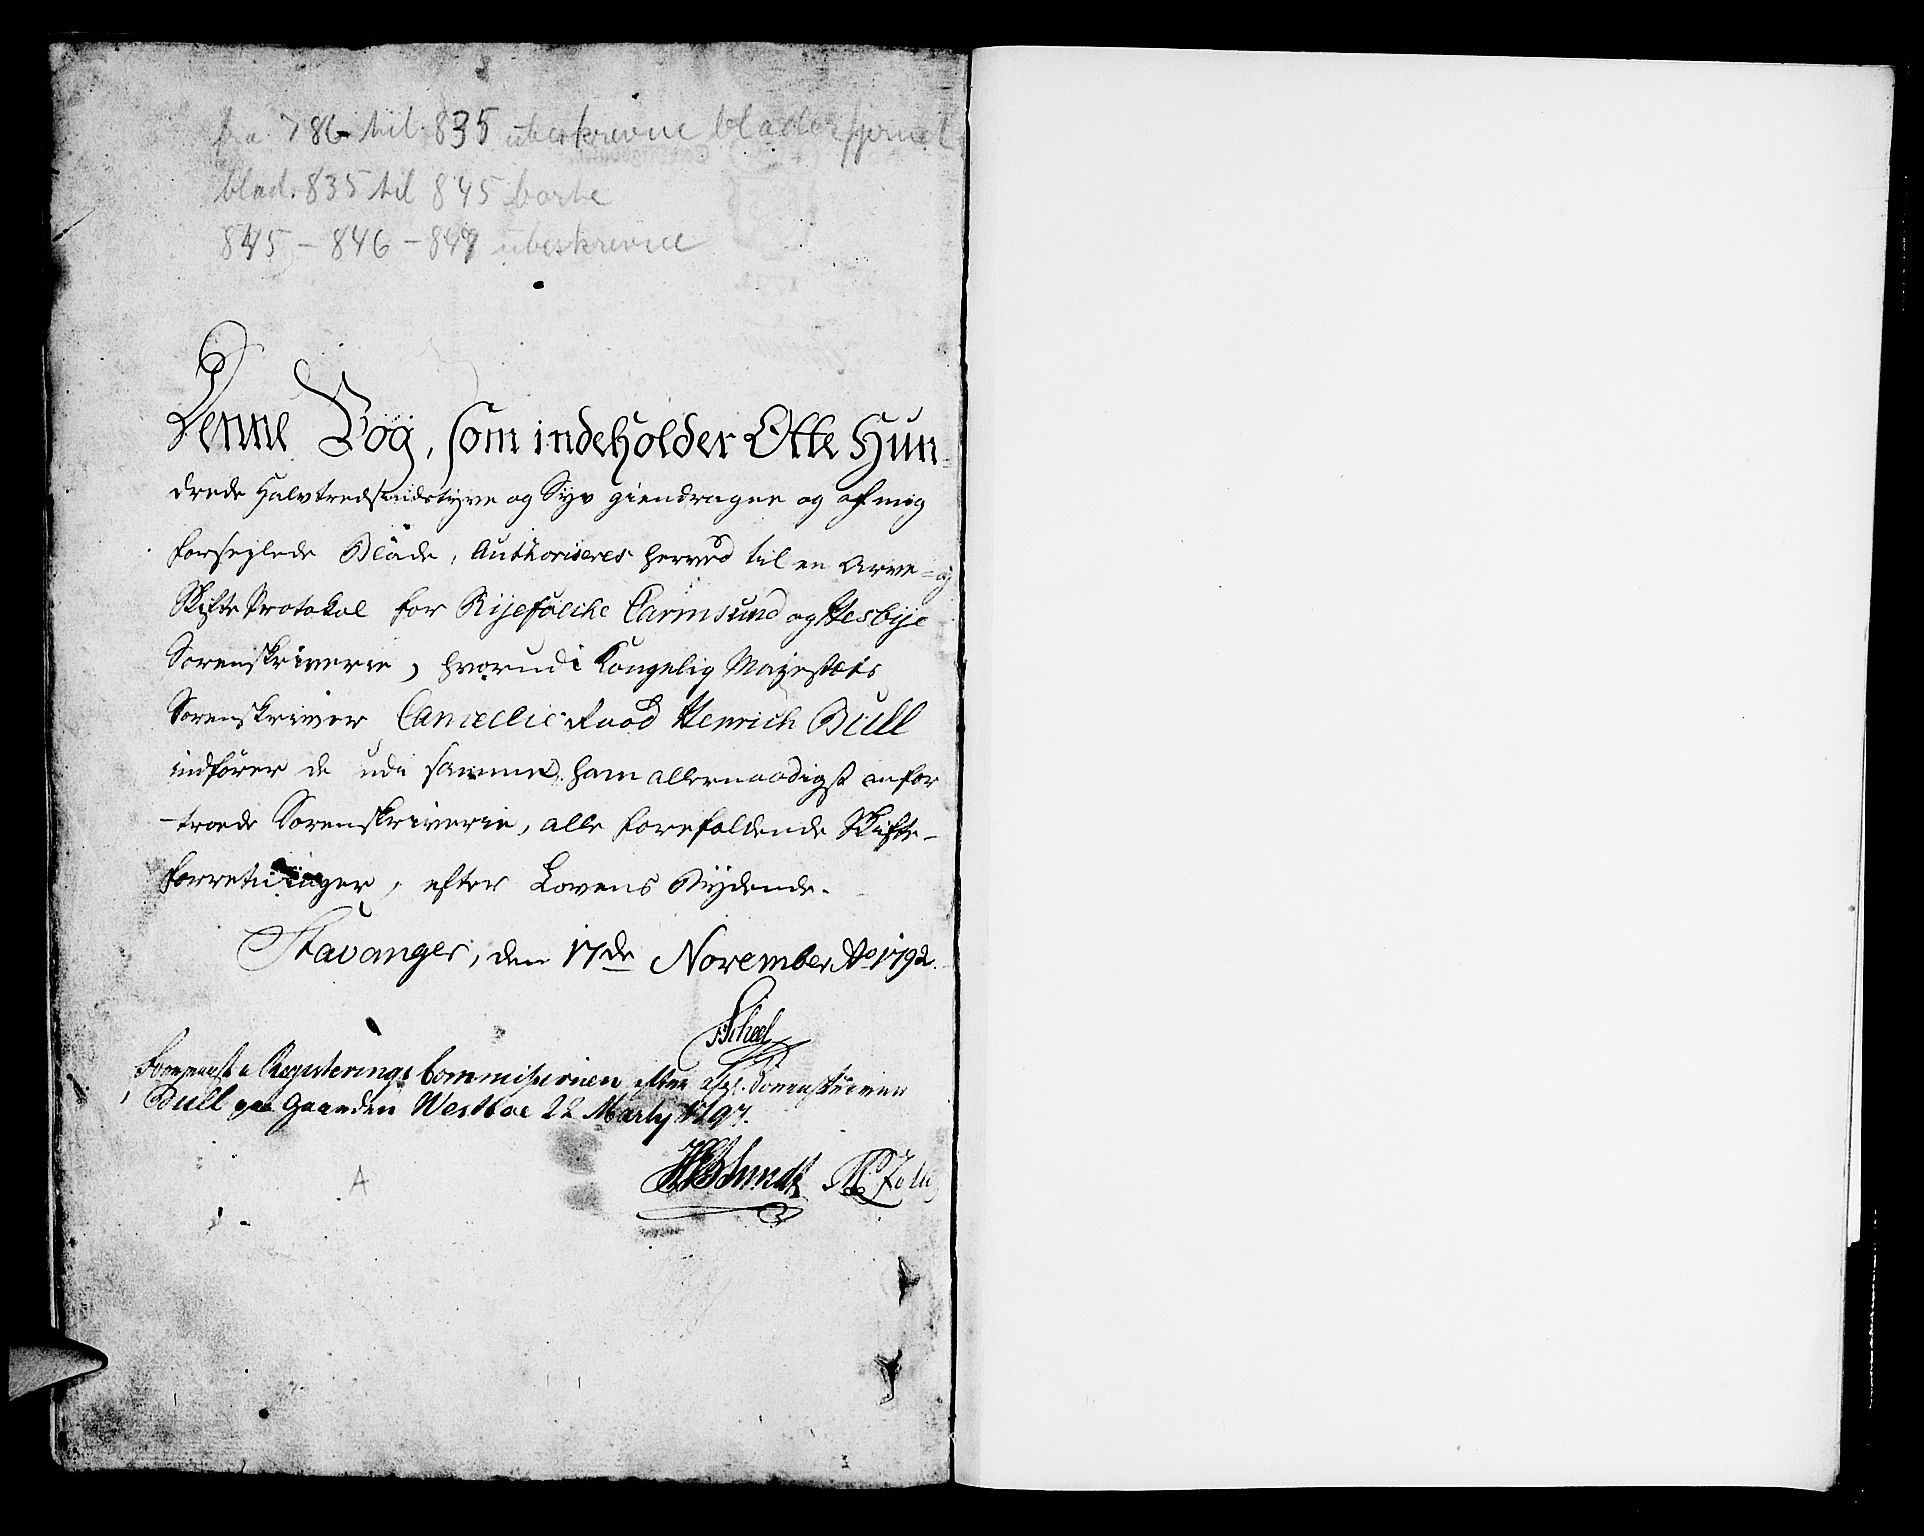 fra 786 til 835 ubeskrevne blade fjernet
blad. 835 til 845 borte
845 - 846 - 847 ubeskrevne
Denne Bog, som indeholder Otte Hun-
drede Halvtredsindstyve og Syv giendragne og af mig
forseglede Blade, Authoriseres herved til en Arve- og
Skifte Protokol for Rijefölcke Carmsund og Hesbye
Sorenskriverie, hvorudi Kongelig Majestæts
Sorenskriver Cancellie Raad Henrich Bull
indfører de udi samme, ham allernaadigst anfor
-troede Sorenskriverie, alle forefaldende Skifte-
forretninger, efter Lovens Bydende.
Stavanger, den 17de November Ao 1792.
Scheel
Foreviist i Registerings Commissionen efter afg. Sorenskriver
Bull paa Gaarden Westboe 22 Marty 1797.
Schmidt
A